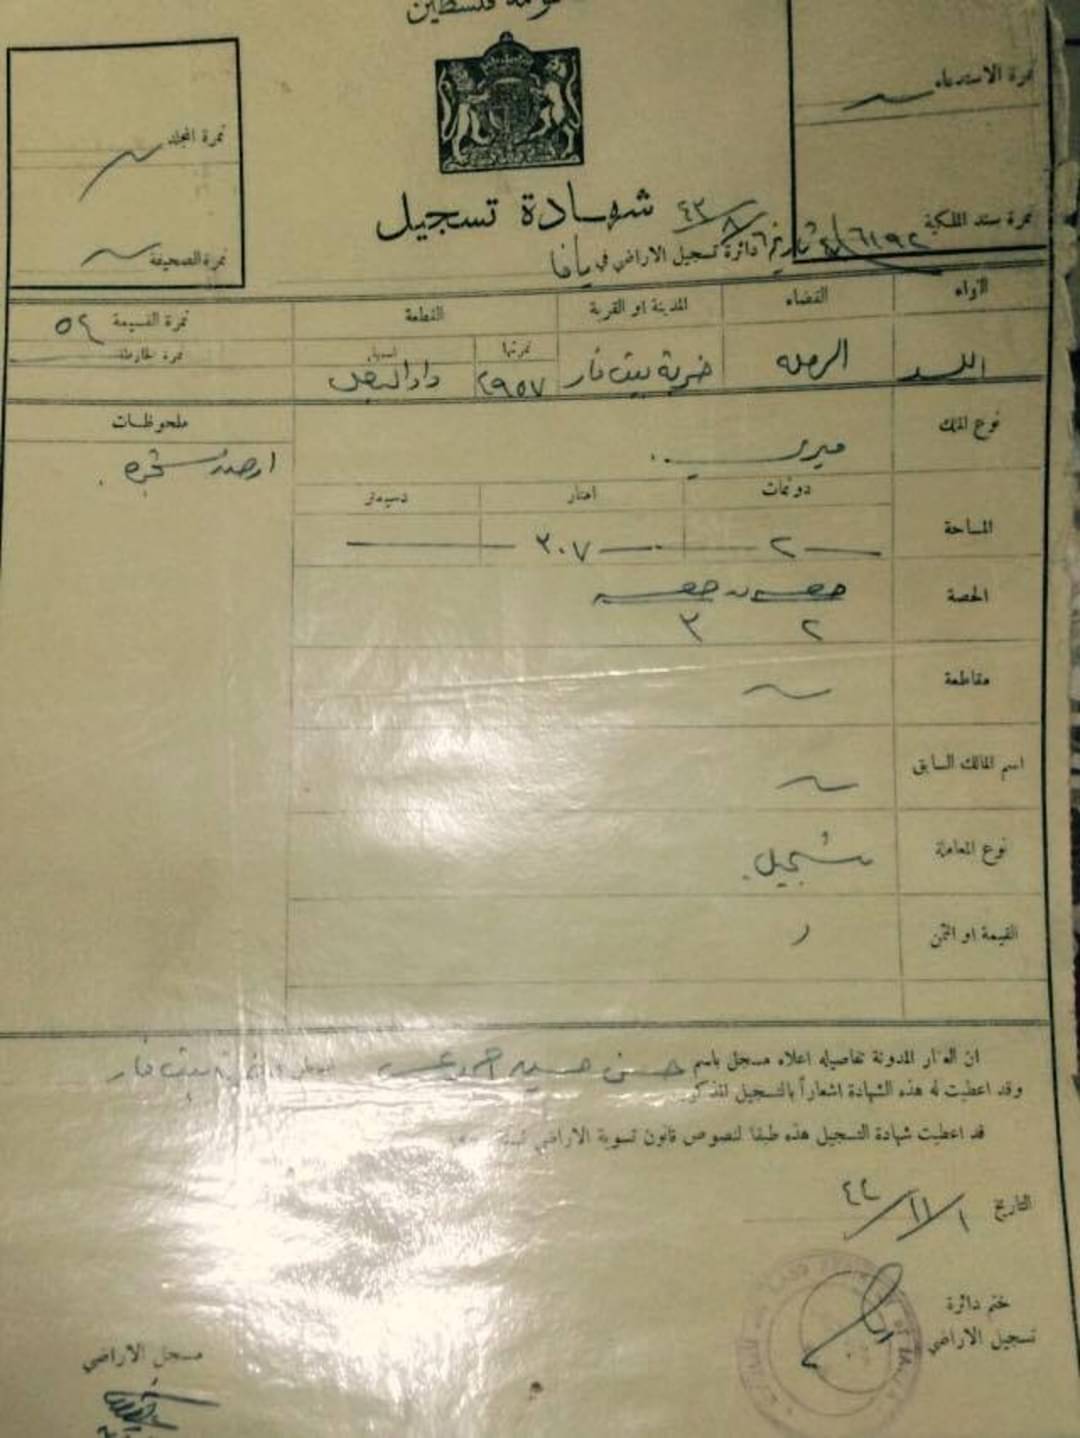 حكومة فلسطين
نمرة الاستدعاء
نمرة المجلد
نمرة سند الملكية
نمرة الصحيفة
شهادة تسجيل
دائرة تسجيل الاراضي في يافا
اللواء القضاء المدينة او القرية القطعة نمرة القسيمة ٥٤
نمرتها اسمها نمرة الخارطة
اللد الرملة خربة بيت فار ٢٩٥٧
نوع الملك ميري
ملحوظات
دونمات امتار دسيمتر
المساحة ٢ ٣٠٧
الحصة حصة من حصة
٢ ٣
مقاطعة
اسم المالك السابق
نوع المعاملة تسجيل
القيمة او الثمن
ان العقار المدونة تفاصيله اعلاه مسجل باسم حسن حسين بيت فار
وقد اعطيت له هذه الشهادة اشعاراً بالتسجيل المذكور
قد اعطيت شهادة التسجيل هذه طبقا لنصوص قانون تسوية الاراضي
التاريخ ١/١١/٤٤
ختم دائرة
تسجيل الاراضي
مسجل الاراضي